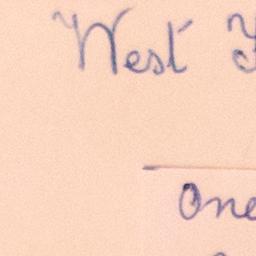 West
One